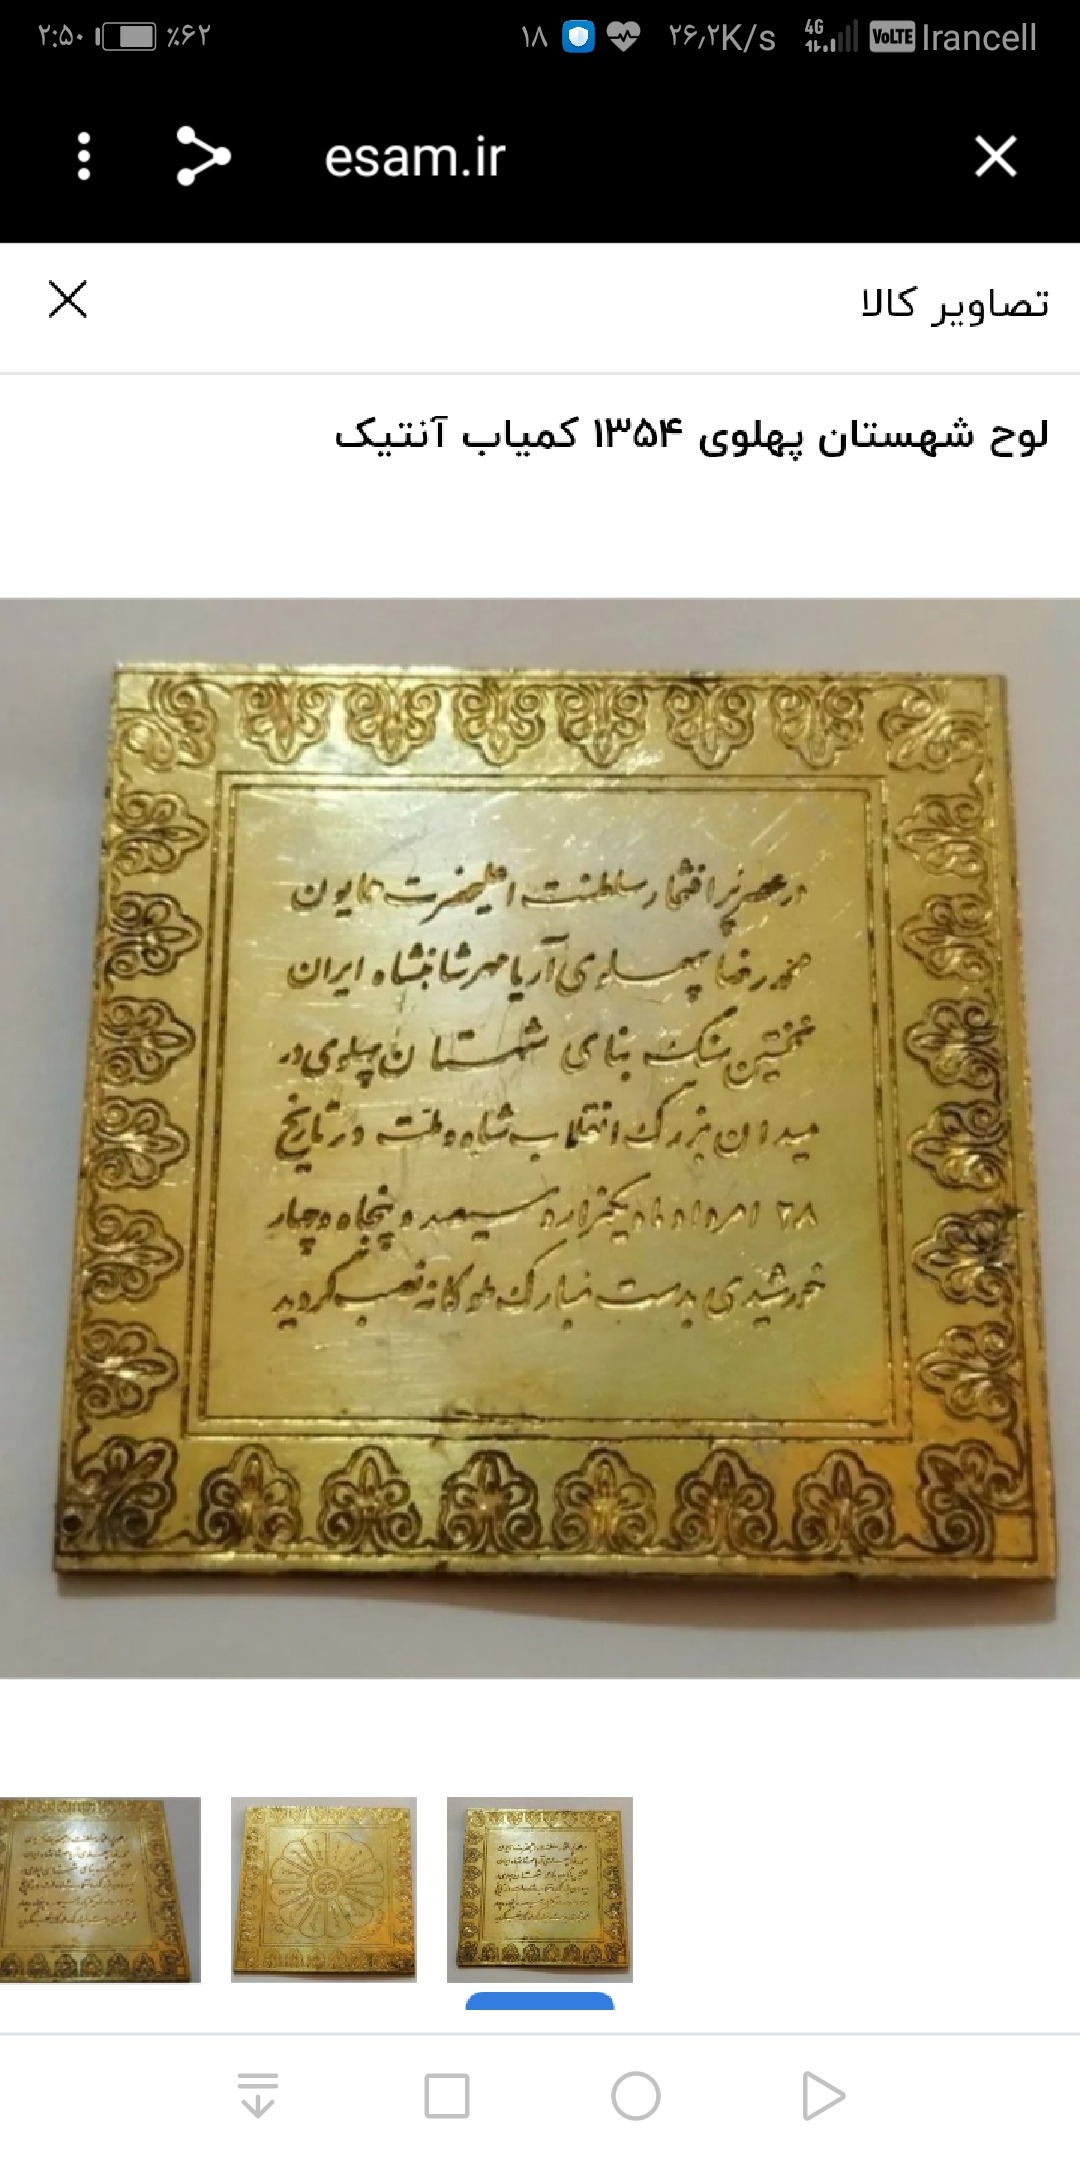 ۲:۵۰ ٪۶۲ ۱۸ ۲۶٫۲K/s 4G VoLTE Irancell
esam.ir
تصاویر کالا
لوح شهستان پهلوی ۱۳۵۴ کمیاب آنتیک
در عصر پر افتخار سلطنت اعلیحضرت همایون
محمد رضا پهلوی آریامهر شاهنشاه ایران
نخستین سنگ بنای شهستان پهلوی در
میدان بزرگ انقلاب شاه و ملت در تاریخ
۲۸ امرداد ماه یکهزار و سیصد و پنجاه و چهار
خورشیدی بدست مبارک ملوکانه نصب گردید